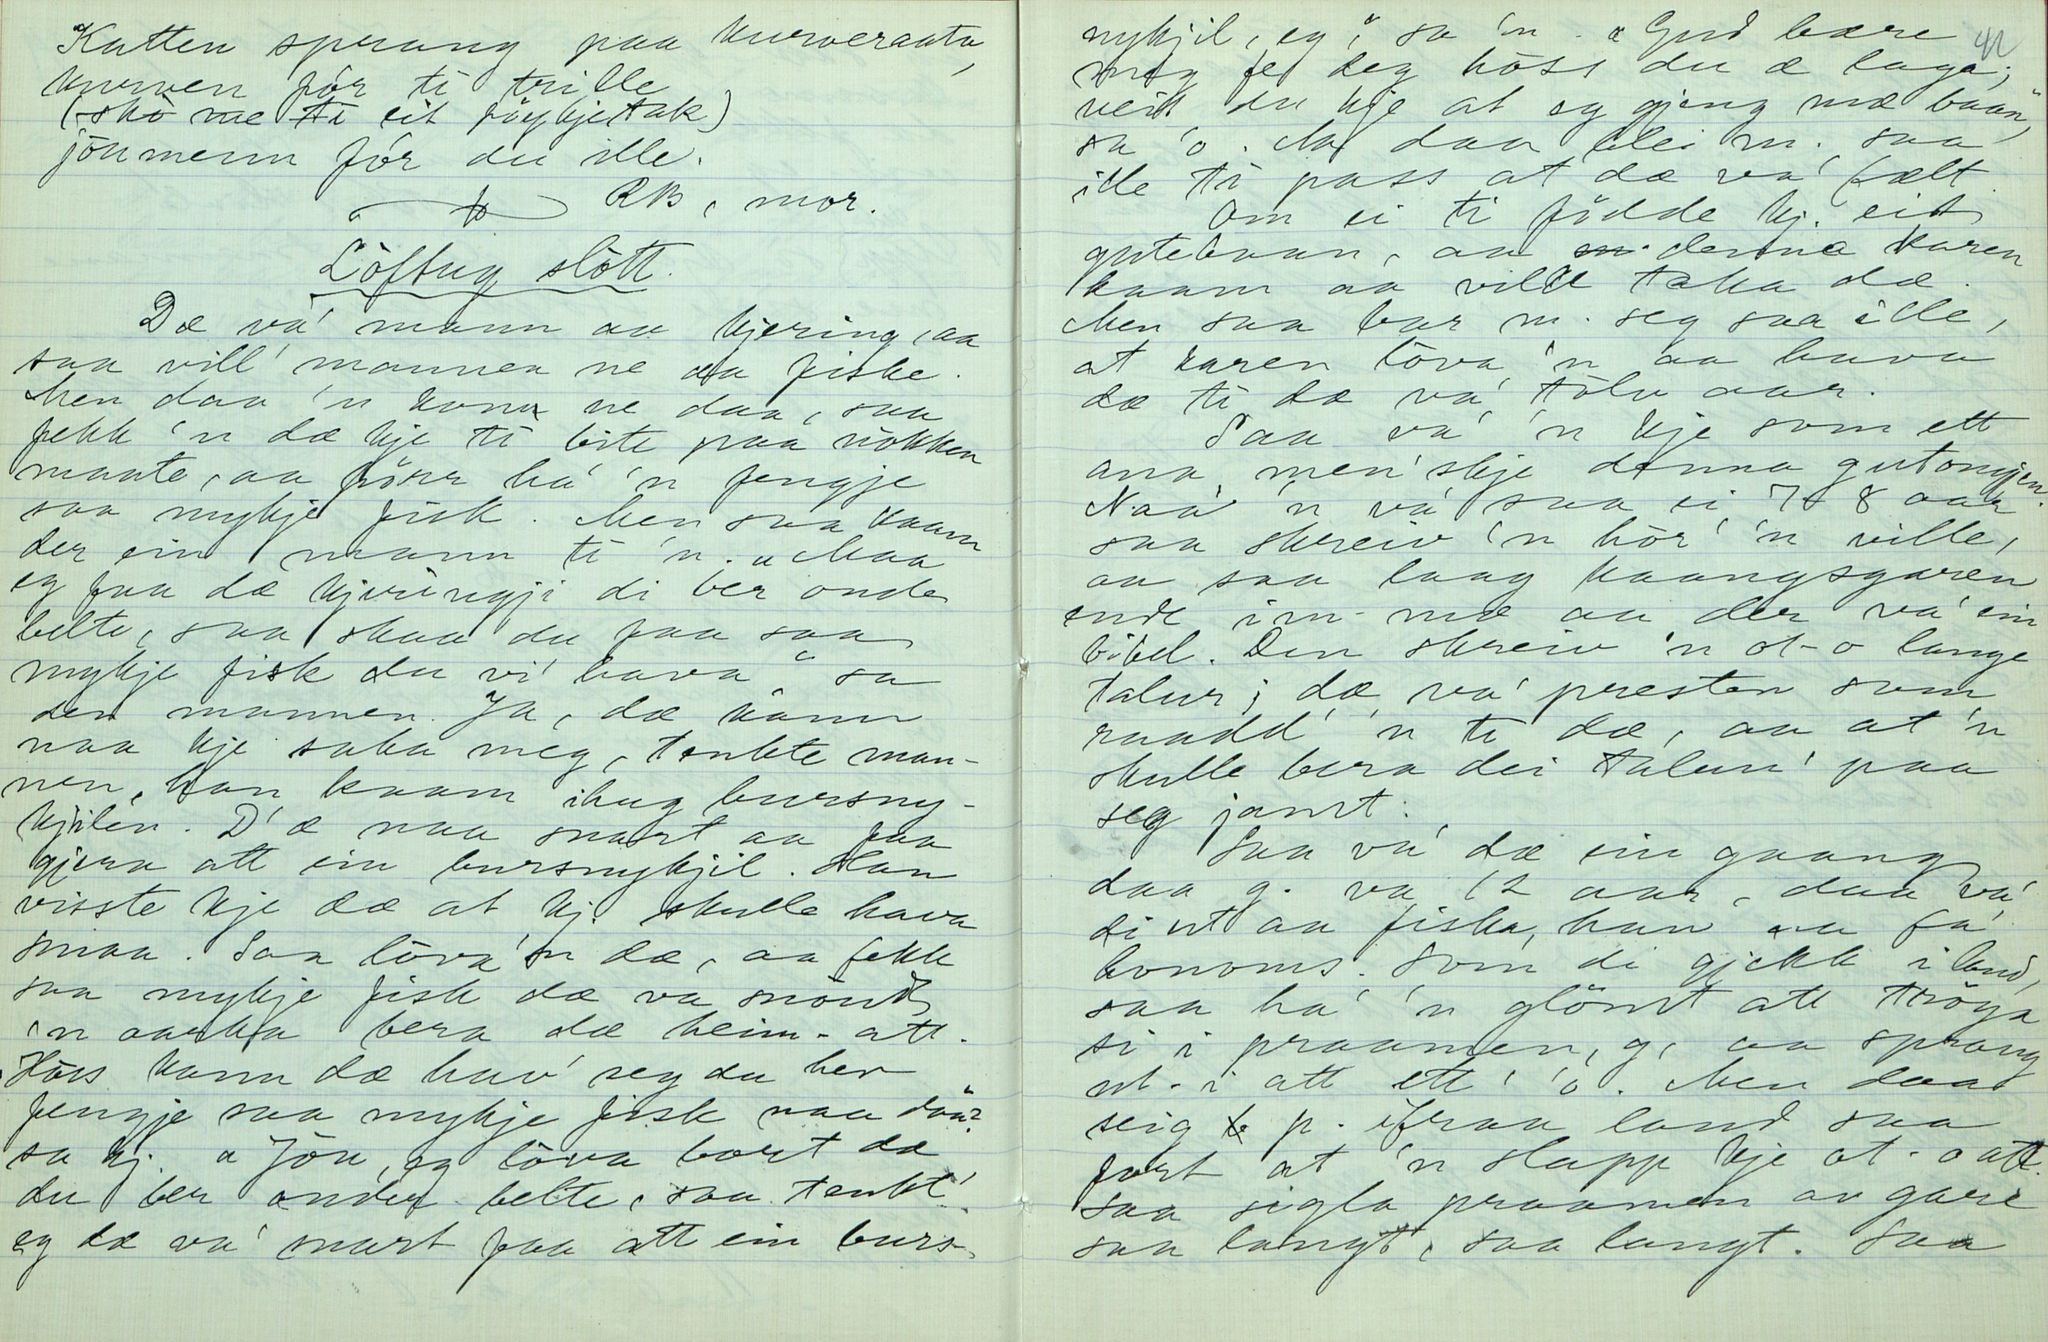 Katten sprang paa kurveraata,
kurven fór ti trille
(skò me ti eit föykjetak)
jönmenn fór du ille.
RB, mor.
Löftug slött.
Dæ va' mann aa kjering, aa
saa vill' mannen ne aa fiske.
Men daa 'n kom ne daa, saa
fekk 'n dæ kje ti bite paa nökken
maate, aa förr ha' 'n fengje
saa mykje fisk. Men saa kaam
der ein mann ti 'n. "Maa
eg faa dæ kjeringji di ber onde
belte, saa skaa du faa saa
mykje fisk du vi' hava" sa
den mannen. Ja, dæ kann
naa kje saka meg, tenkte man-
nen, han kaam ihug bursny-
kjilen. D'æ naa snart aa faa
gjera att ein bursnykjil. Han
visste kje dæ at kj. skulle hava
smaa. Saa lova 'n dæ, aa fekk
saa mykje fisk dæ va snöudt
'n aarka bera dæ heim-att.
Höss kann dæ hav' seg du her
fengje saa mykje fisk naa daa?
sa kj. "Jöu, eg lova bort dæ
du ber onder belte, saa tenkt'
eg dæ va' snart faa att ein burs-
41
nykjil, eg", sa 'n. "Gud bære
meg fe deg höss du æ laga;
veit du kje at eg gjeng mæ baan",
sa 'o. Na daa blei m. saa
ille ti pass at dæ va' fælt.
Om ei ti födde kj. eit
gutebaan, aa denna karen
kaam aa vill taka dæ.
Men saa bar m. seg saa ille,
at karen lova 'n aa hava
dæ ti dæ va' tolv aar.
Saa va' 'n kje som ett
ana men'skje denna gutongjen.
Naa 'n va' saa ei 7 8 aar
saa skreiv 'n hör' 'n ville,
aa saa laag kaangsgaren
ende imm mæ aa der va' ein
bibel. Den skreiv 'n ot-o lange
talur; dæ va' presten som
raadd' 'n ti dæ, aa at 'n
skulle bera dei talun' paa
seg jamt.
Saa va' dæ ein gaang
daa g. va 12 aar, daa va'
di ut aa fiska, han aa fa'
honoms. Som di gjekk i land,
saa ha' 'n glömt att tröya
si i praamen, g, aa sprang
ut-i att ett' 'o. Men daa
seig p. ifraa land saa
fort at 'n slapp kje ot-o att.
Saa sigla praamen av gare
saa langt, saa langt. Saa